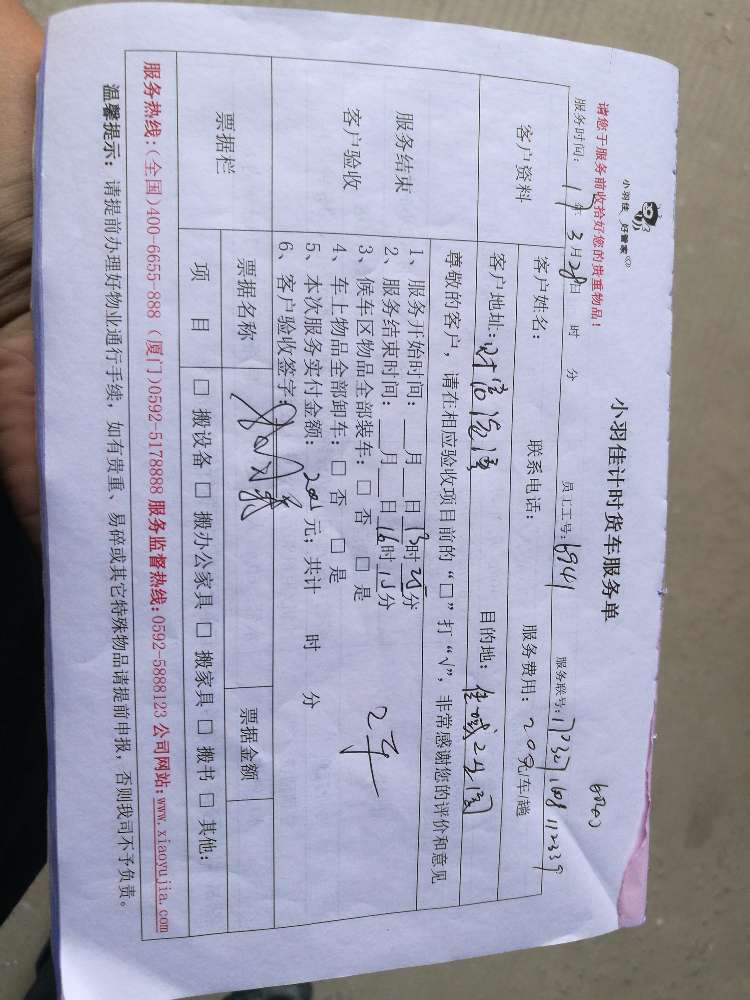 请您于服务前收拾好您的贵重物品！
小羽佳 好管家®
小羽佳计时货车服务单
服务时间：17年3月28日 时 分 员工工号：6941 服务联号：
客户资料 客户姓名： 联系电话： 服务费用：200元/车/趟
客户地址： 目的地：
尊敬的客户，请在相应验收项目前的“□”打“√”，非常感谢您的评价和意见
服务结束
客户验收
1、服务开始时间：__月__日13时25分
2、服务结束时间：__月__日16时15分
3、候车区物品全部装车：□否 □是
4、车上物品全部卸车：□否 □是
5、本次服务实付金额：200元；共计 时 分
6、客户验收签字：
2车
票据栏 票据名称 票据金额
项 目 □ 搬设备 □ 搬办公家具 □ 搬家具 □ 搬书 □ 其他：
服务热线：(全国)400-6655-888 (厦门)0592-5178888 服务监督热线：0592-5888123 公司网站：www.xiaoyujia.com
温馨提示：请提前办理好物业通行手续，如有贵重、易碎或其它特殊物品请提前申报，否则我司不予负责。